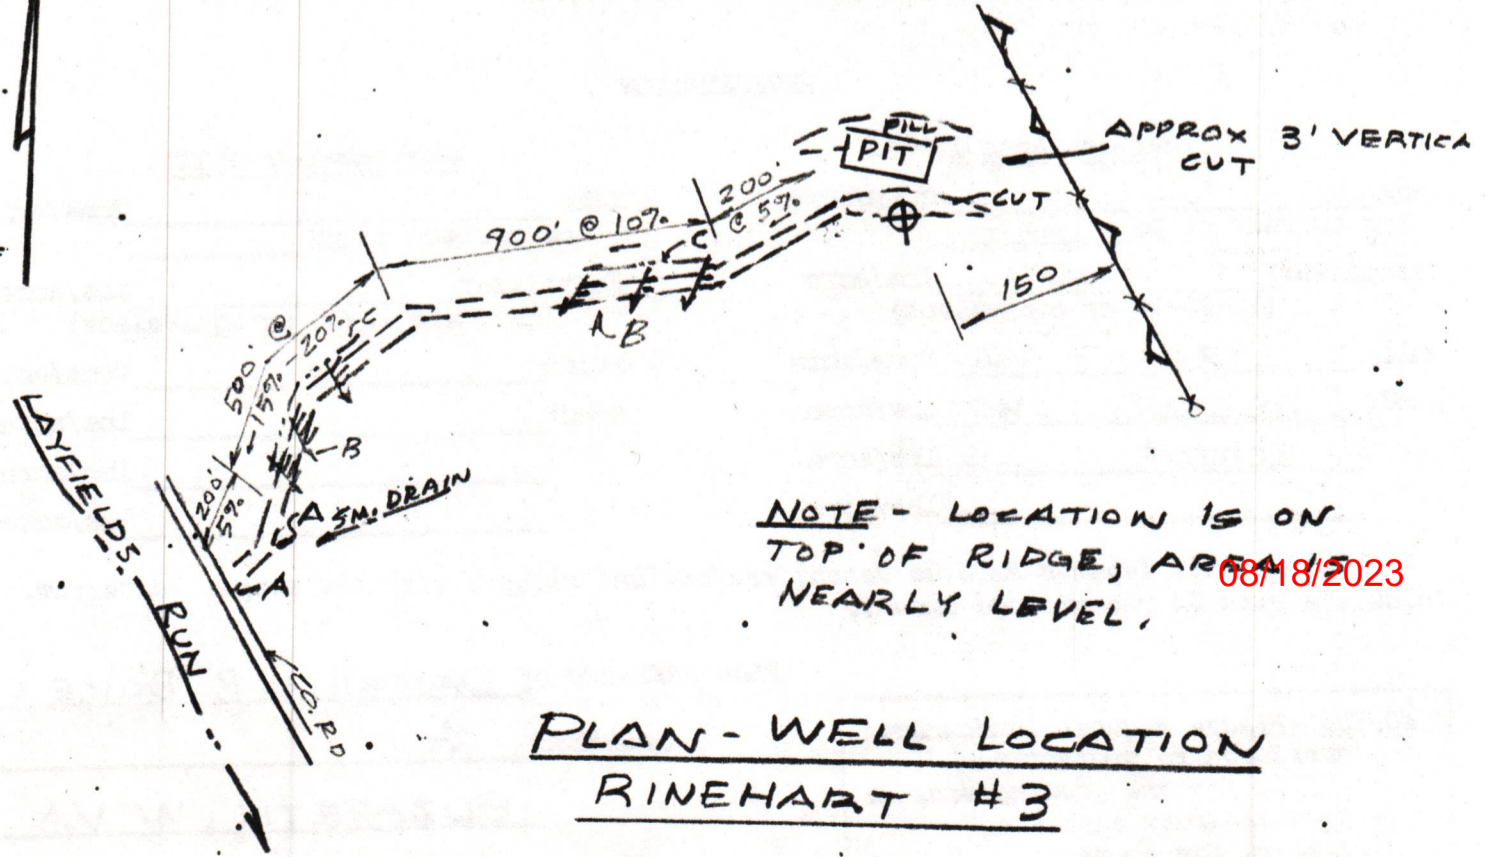 FILL
PIT
APPROX 3' VERTICA
CUT
CUT
200'
@ 5%
900' @ 10%
C
150
500' @
20%
15%
C
A B
B
200'
5%
A SM. DRAIN
A
LAYFIELDS RUN
CO. RD
NOTE - LOCATION IS ON
TOP OF RIDGE, AREA IS
NEARLY LEVEL.
08/18/2023
PLAN - WELL LOCATION
RINEHART #3